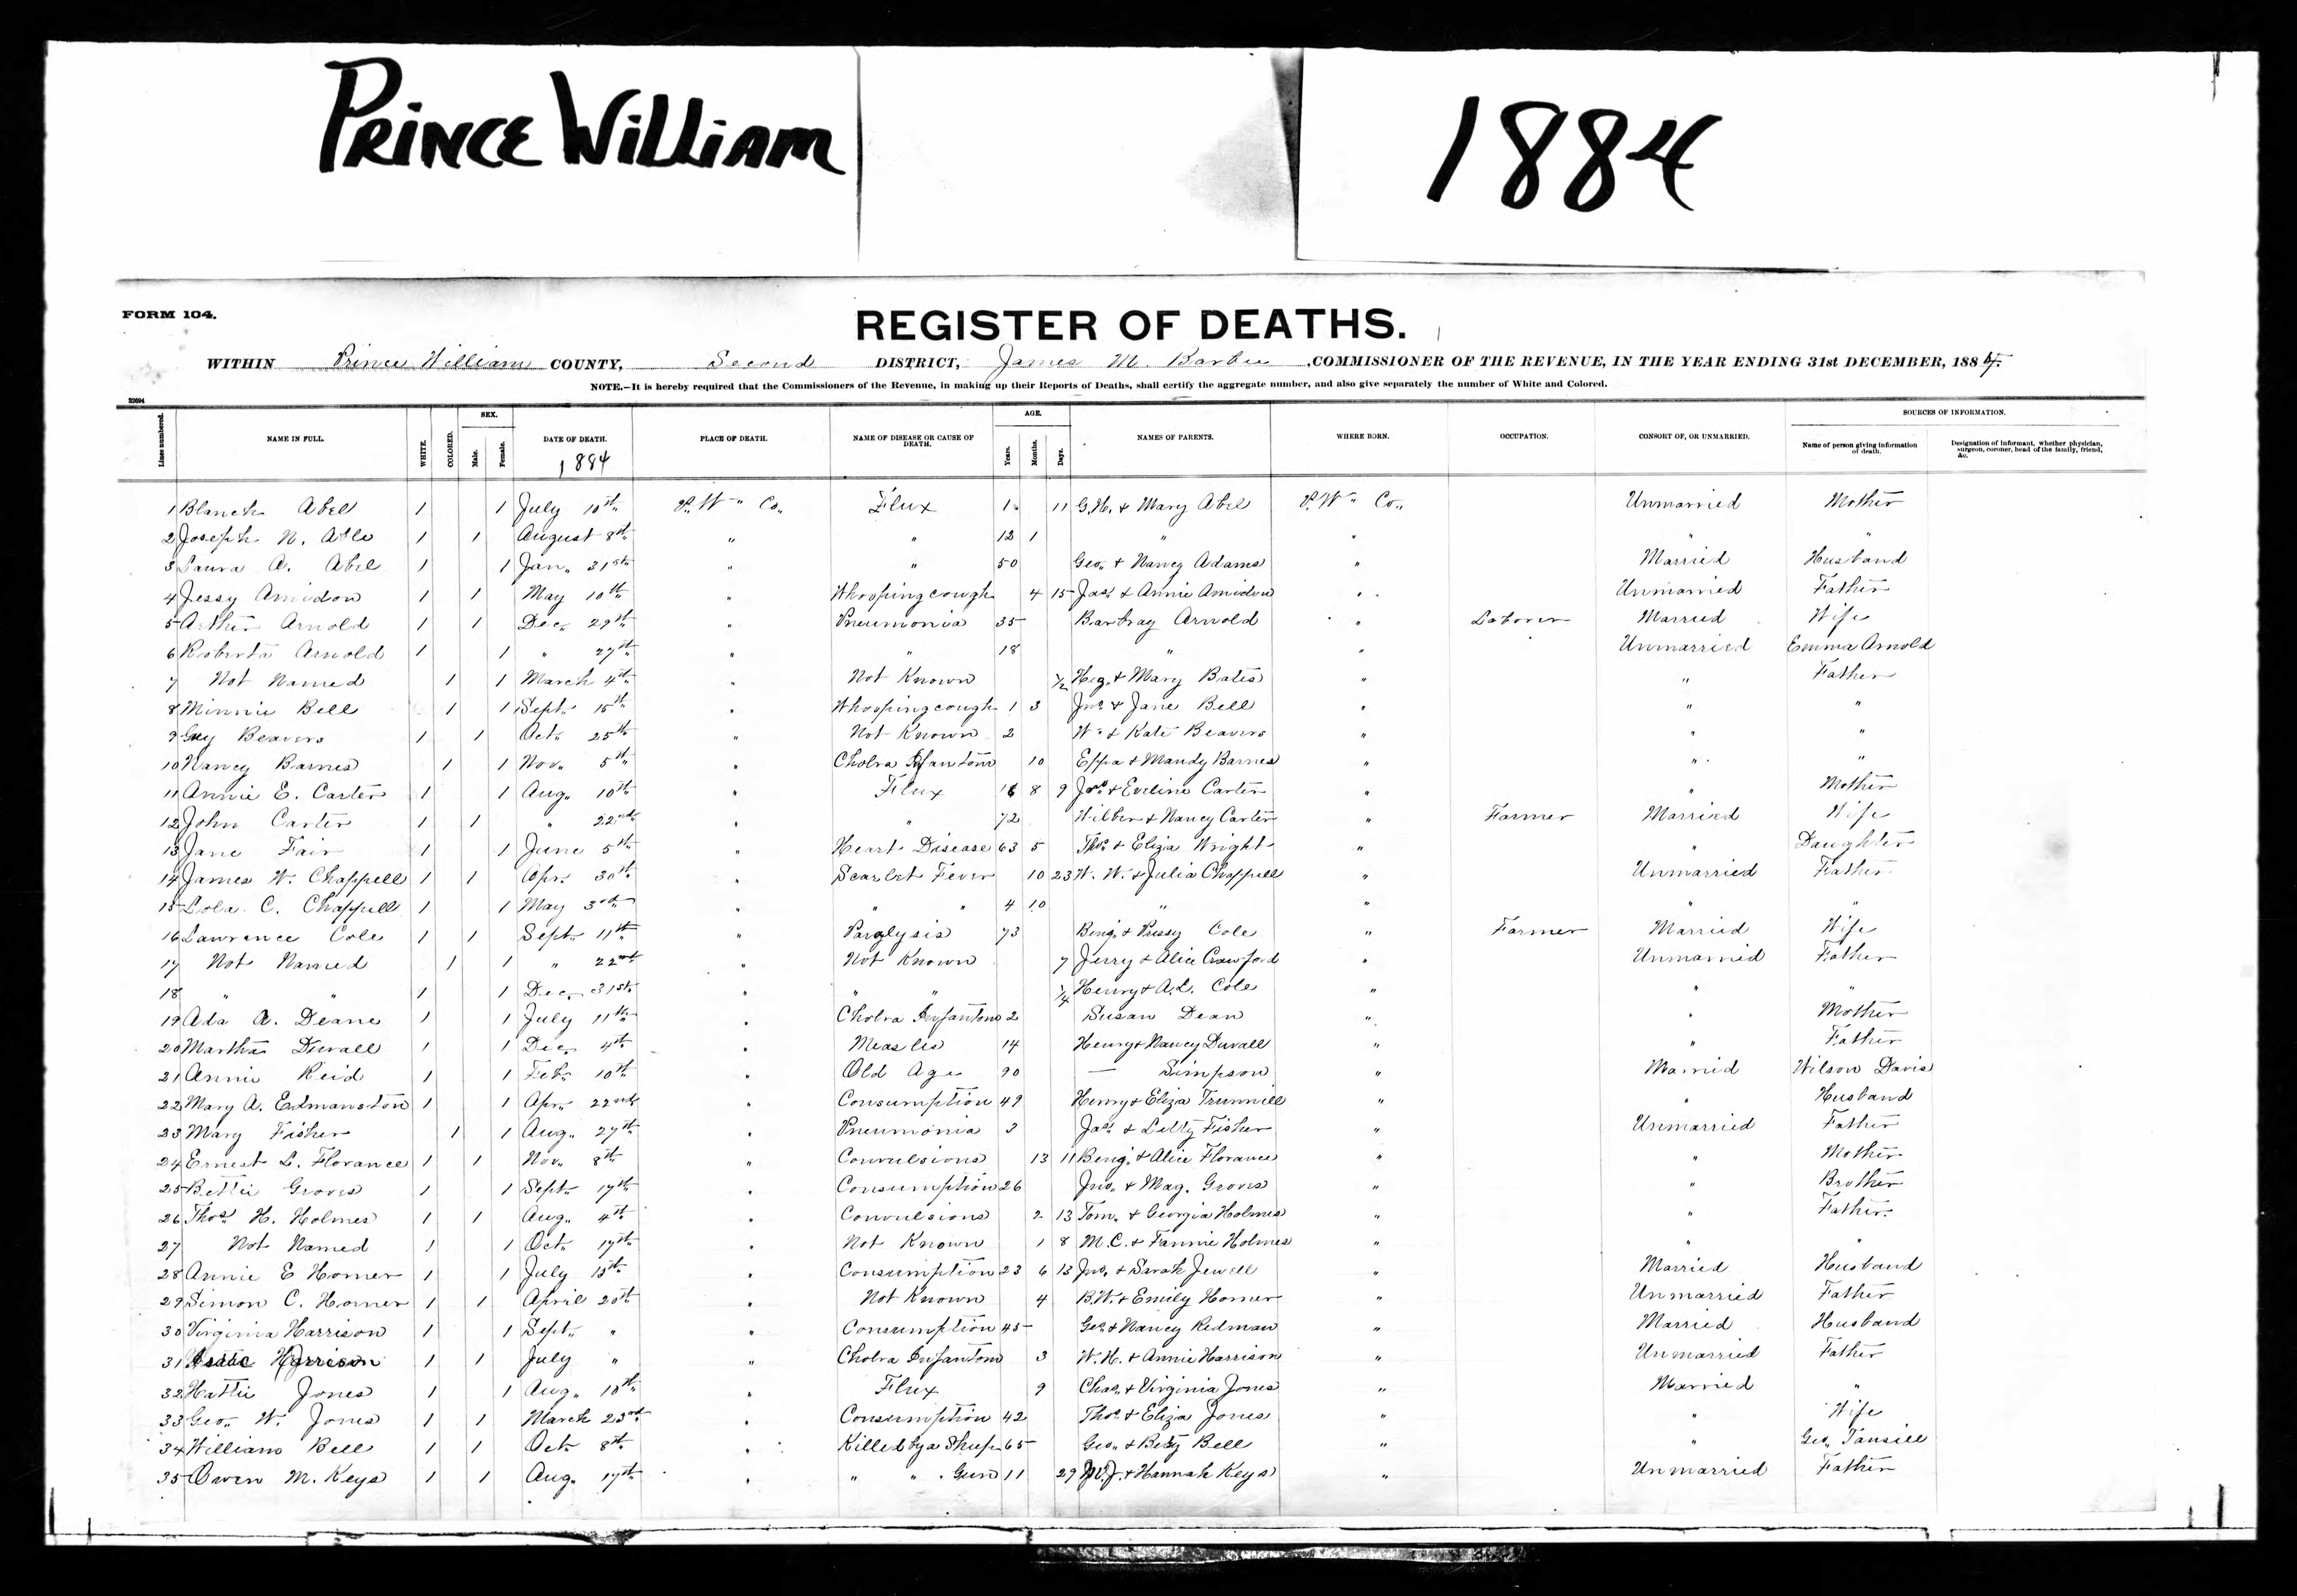 PRINCE WILLIAM 1884
FORM 104.
REGISTER OF DEATHS.
WITHIN Prince William COUNTY, Second DISTRICT, James M. Barbee, COMMISSIONER OF THE REVENUE, IN THE YEAR ENDING 31st DECEMBER, 1884.
NOTE.—It is hereby required that the Commissioners of the Revenue, in making up their Reports of Deaths, shall certify the aggregate number, and also give separately the number of White and Colored.
Lines numbered. NAME IN FULL. WHITE. COLORED. SEX. Male. Female. DATE OF DEATH. 1884 PLACE OF DEATH. NAME OF DISEASE OR CAUSE OF DEATH. AGE. Years. Months. Days. NAMES OF PARENTS. WHERE BORN. OCCUPATION. CONSORT OF, OR UNMARRIED. SOURCES OF INFORMATION. Name of person giving information of death. Designation of informant, whether physician, surgeon, coroner, head of the family, friend, &c.
1 Blanch Abel 1 1 July 10th P. Wm Co. Flux 1 11 G.H. & Mary Abel P. Wm Co. Unmarried Mother
2 Joseph N. 1 1 August 8th " " 12 1 " " " "
3 Laura A. Abel 1 1 Jan. 31st " " 50 Geo. & Nancy Adams " Married Husband
4 Jessy Amidon 1 1 May 10th " Whoopingcough 4 15 Jas. & Annie Amidon " Unmarried Father
5 Arthur Arnold 1 1 Dec. 29th " Pneumonia 35 Arnold " Laborer Married Wife
6 Roberta Arnold 1 1 " 27th " " 18 " " Unmarried Emma Arnold
7 Not Named 1 1 March 4th " Not Known 1/2 & Mary Bates " " Father
8 Minnie Bell 1 1 Sept. 15th " Whoopingcough 1 3 Jno. & Jane Bell " " "
9 Guy Beavers 1 1 Oct. 25th " Not Known 2 Wm & Kate Beavers " " "
10 Nancy Barnes 1 1 Nov. 5th " Cholra Infantom 10 Eppa & Mandy Barnes " " "
11 Annie E. Carter 1 1 Aug. 10th " Flux 16 8 9 & Eveline Carter " " Mother
12 John Carter 1 1 " 22nd " " 72 Wilber & Nancy Carter " Farmer Married Wife
13 Jane Fair 1 1 June 5th " Heart Disease 63 5 Thos. & Eliza Wright " " Daughter
14 James W. Chappell 1 1 Apr. 30th " Scarlet Fever 10 23 W. W. & Julia Chappell " Unmarried Father
15 Lola C. Chappell 1 1 May 3rd " " " 4 10 " " " "
16 Lawrence Cole 1 1 Sept. 11th " Paralysis 73 Benj. & Pussy Cole " Farmer Married Wife
17 Not Named 1 1 " 22nd " Not Known 7 Jerry & Alice Crawford " Unmarried Father
18 " " 1 1 Dec. 31st " " " 1/4 Henry & A.L. Cole " " "
19 Ada A. Deane 1 1 July 11th " Cholra Infantom 2 Susan Dean " " Mother
20 Martha Duvall 1 1 Dec. 4th " Measles 14 Henry & Nancy Duvall " " Father
21 Annie Reid 1 1 Feb. 10th " Old Age 90 — Simpson " Married Wilson Davis
22 Mary A. Edmanston 1 1 Apr. 22nd " Consumption 49 Henry & Eliza Trunnill " " Husband
23 Mary Fisher 1 1 Aug. 27th " Pneumonia 3 Jas. & Letty Fisher " Unmarried Father
24 Ernest L. Florance 1 1 Nov. 8th " Convulsions 13 11 Benj. & Alice Florance " " Mother
25 Bettie Groves 1 1 Sept. 17th " Consumption 26 Jno. & Mag. Groves " " Brother
26 Thos. H. Holmes 1 1 Aug. 4th " Convulsions 2 13 Tom. & Georgia Holmes " " Father
27 Not Named 1 1 Oct. 17th " Not Known 1 8 M.C. & Fannie Holmes " " "
28 Annie E Horner 1 1 July 15th " Consumption 23 6 13 Jno. & Sarah Jewell " Married Husband
29 Simon C. Horner 1 1 April 20th " Not Known 4 B.W. & Emily Horner " Unmarried Father
30 Virginia Harrison 1 1 Sept. " " Consumption 45 Geo. & Nancy Redman " Married Husband
31 Harrison 1 1 July " " Cholra Infantom 3 W.H. & Annie Harrison " Unmarried Father
32 Hattie Jones 1 1 Aug. 10th " Flux 9 Chas. & Virginia Jones " Married "
33 Geo. W. Jones 1 1 March 23rd " Consumption 42 Thos. & Eliza Jones " " Wife
34 William Bell 1 1 Oct. 8th " Killed by a Sheep 65 Geo. & Betsy Bell " " Geo. Tansill
35 Owen M. Keys 1 1 Aug. 17th " " " Gun 11 29 & Hannah Keys " Unmarried Father